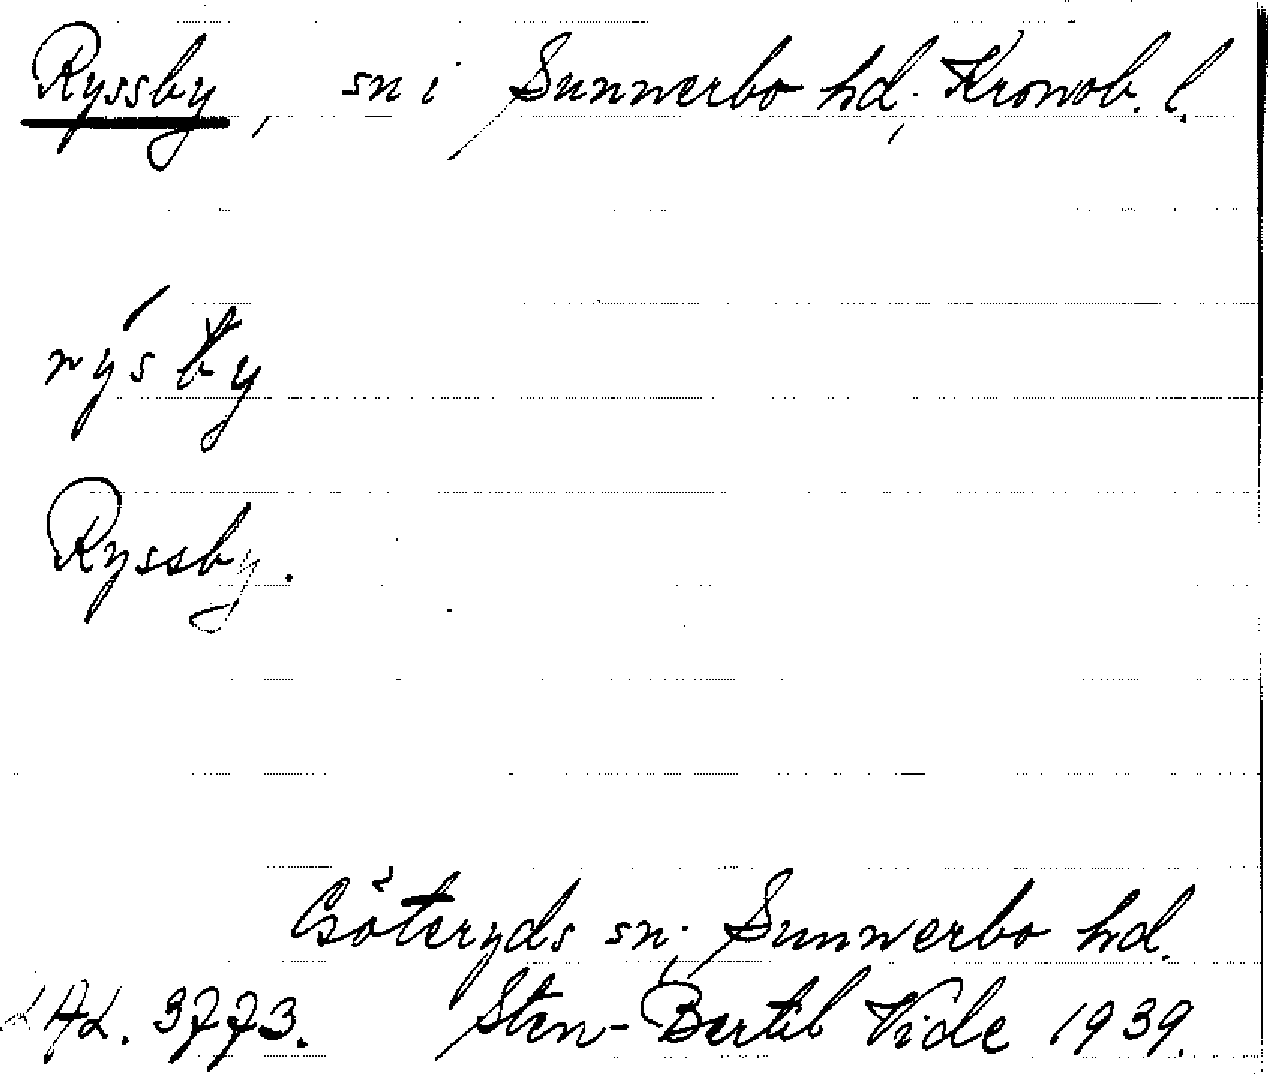 Ryssby, sn i Sunnerbo hd, Kronob. l.
rýsby
Ryssby.
Göteryds sn, Sunnerbo hd.
LAL. 3773. Sten-Bertil Vide 1939.